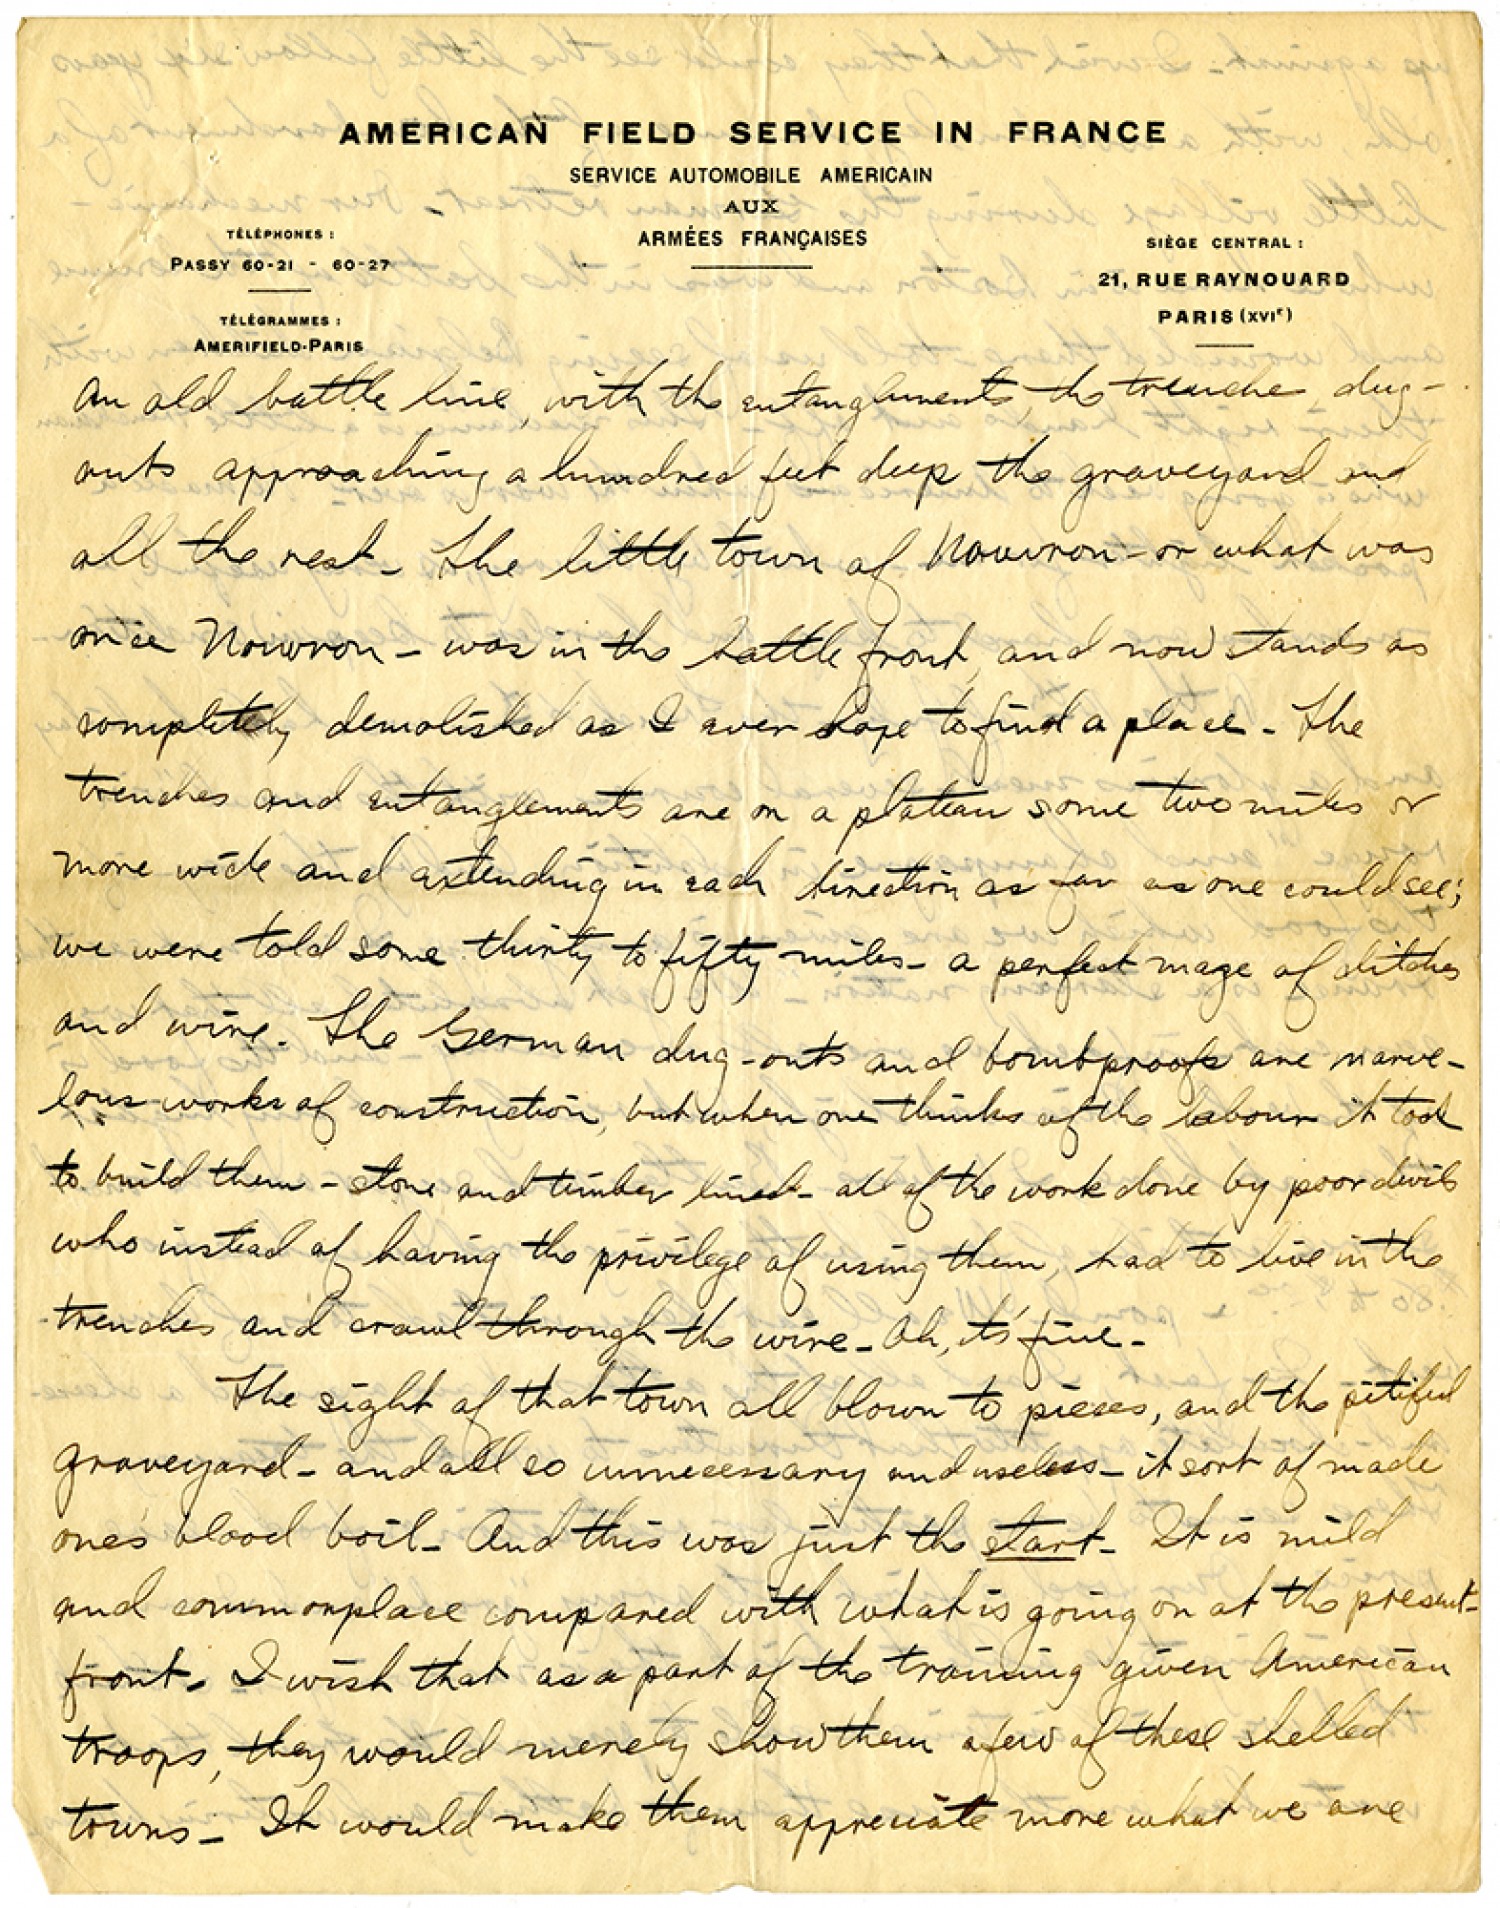 AMERICAN FIELD SERVICE IN FRANCE
SERVICE AUTOMOBILE AMERICAIN
AUX
ARMÉES FRANÇAISES
TÉLÉPHONES :
PASSY 60-21 - 60-27
TÉLÉGRAMMES :
AMERIFIELD-PARIS
SIÈGE CENTRAL :
21, RUE RAYNOUARD
PARIS (XVIe)
an old battle line, with the entanglements, the trenches, dug-
outs approaching a hundred feet deep the graveyard and
all the rest - The little town of Nouvron - or what was
once Nouvron - was in the battle front, and now stands as
completely demolished as I ever hope to find a place - The
trenches and entanglements are on a plateau some two miles or
more wide and extending in each direction as far as one could see;
we were told some thirty to fifty miles - a perfect maze of ditches
and wire. The German dug-outs and bombproofs are marve-
lous works of construction, but when one thinks of the labour it took
to build them - stone and timber lined - all of the work done by poor devils
who instead of having the privilege of using them, had to live in the
trenches and crawl through the wire - Oh, it's fine -
The sight of that town all blown to pieces, and the pitiful
graveyard - and all so unnecessary and useless - it sort of made
one's blood boil - And this was just the start - It is mild
and commonplace compared with what is going on at the present
front - I wish that as a part of the training given American
troops, they would merely show them a few of these shelled
towns - It would make them appreciate more what we are